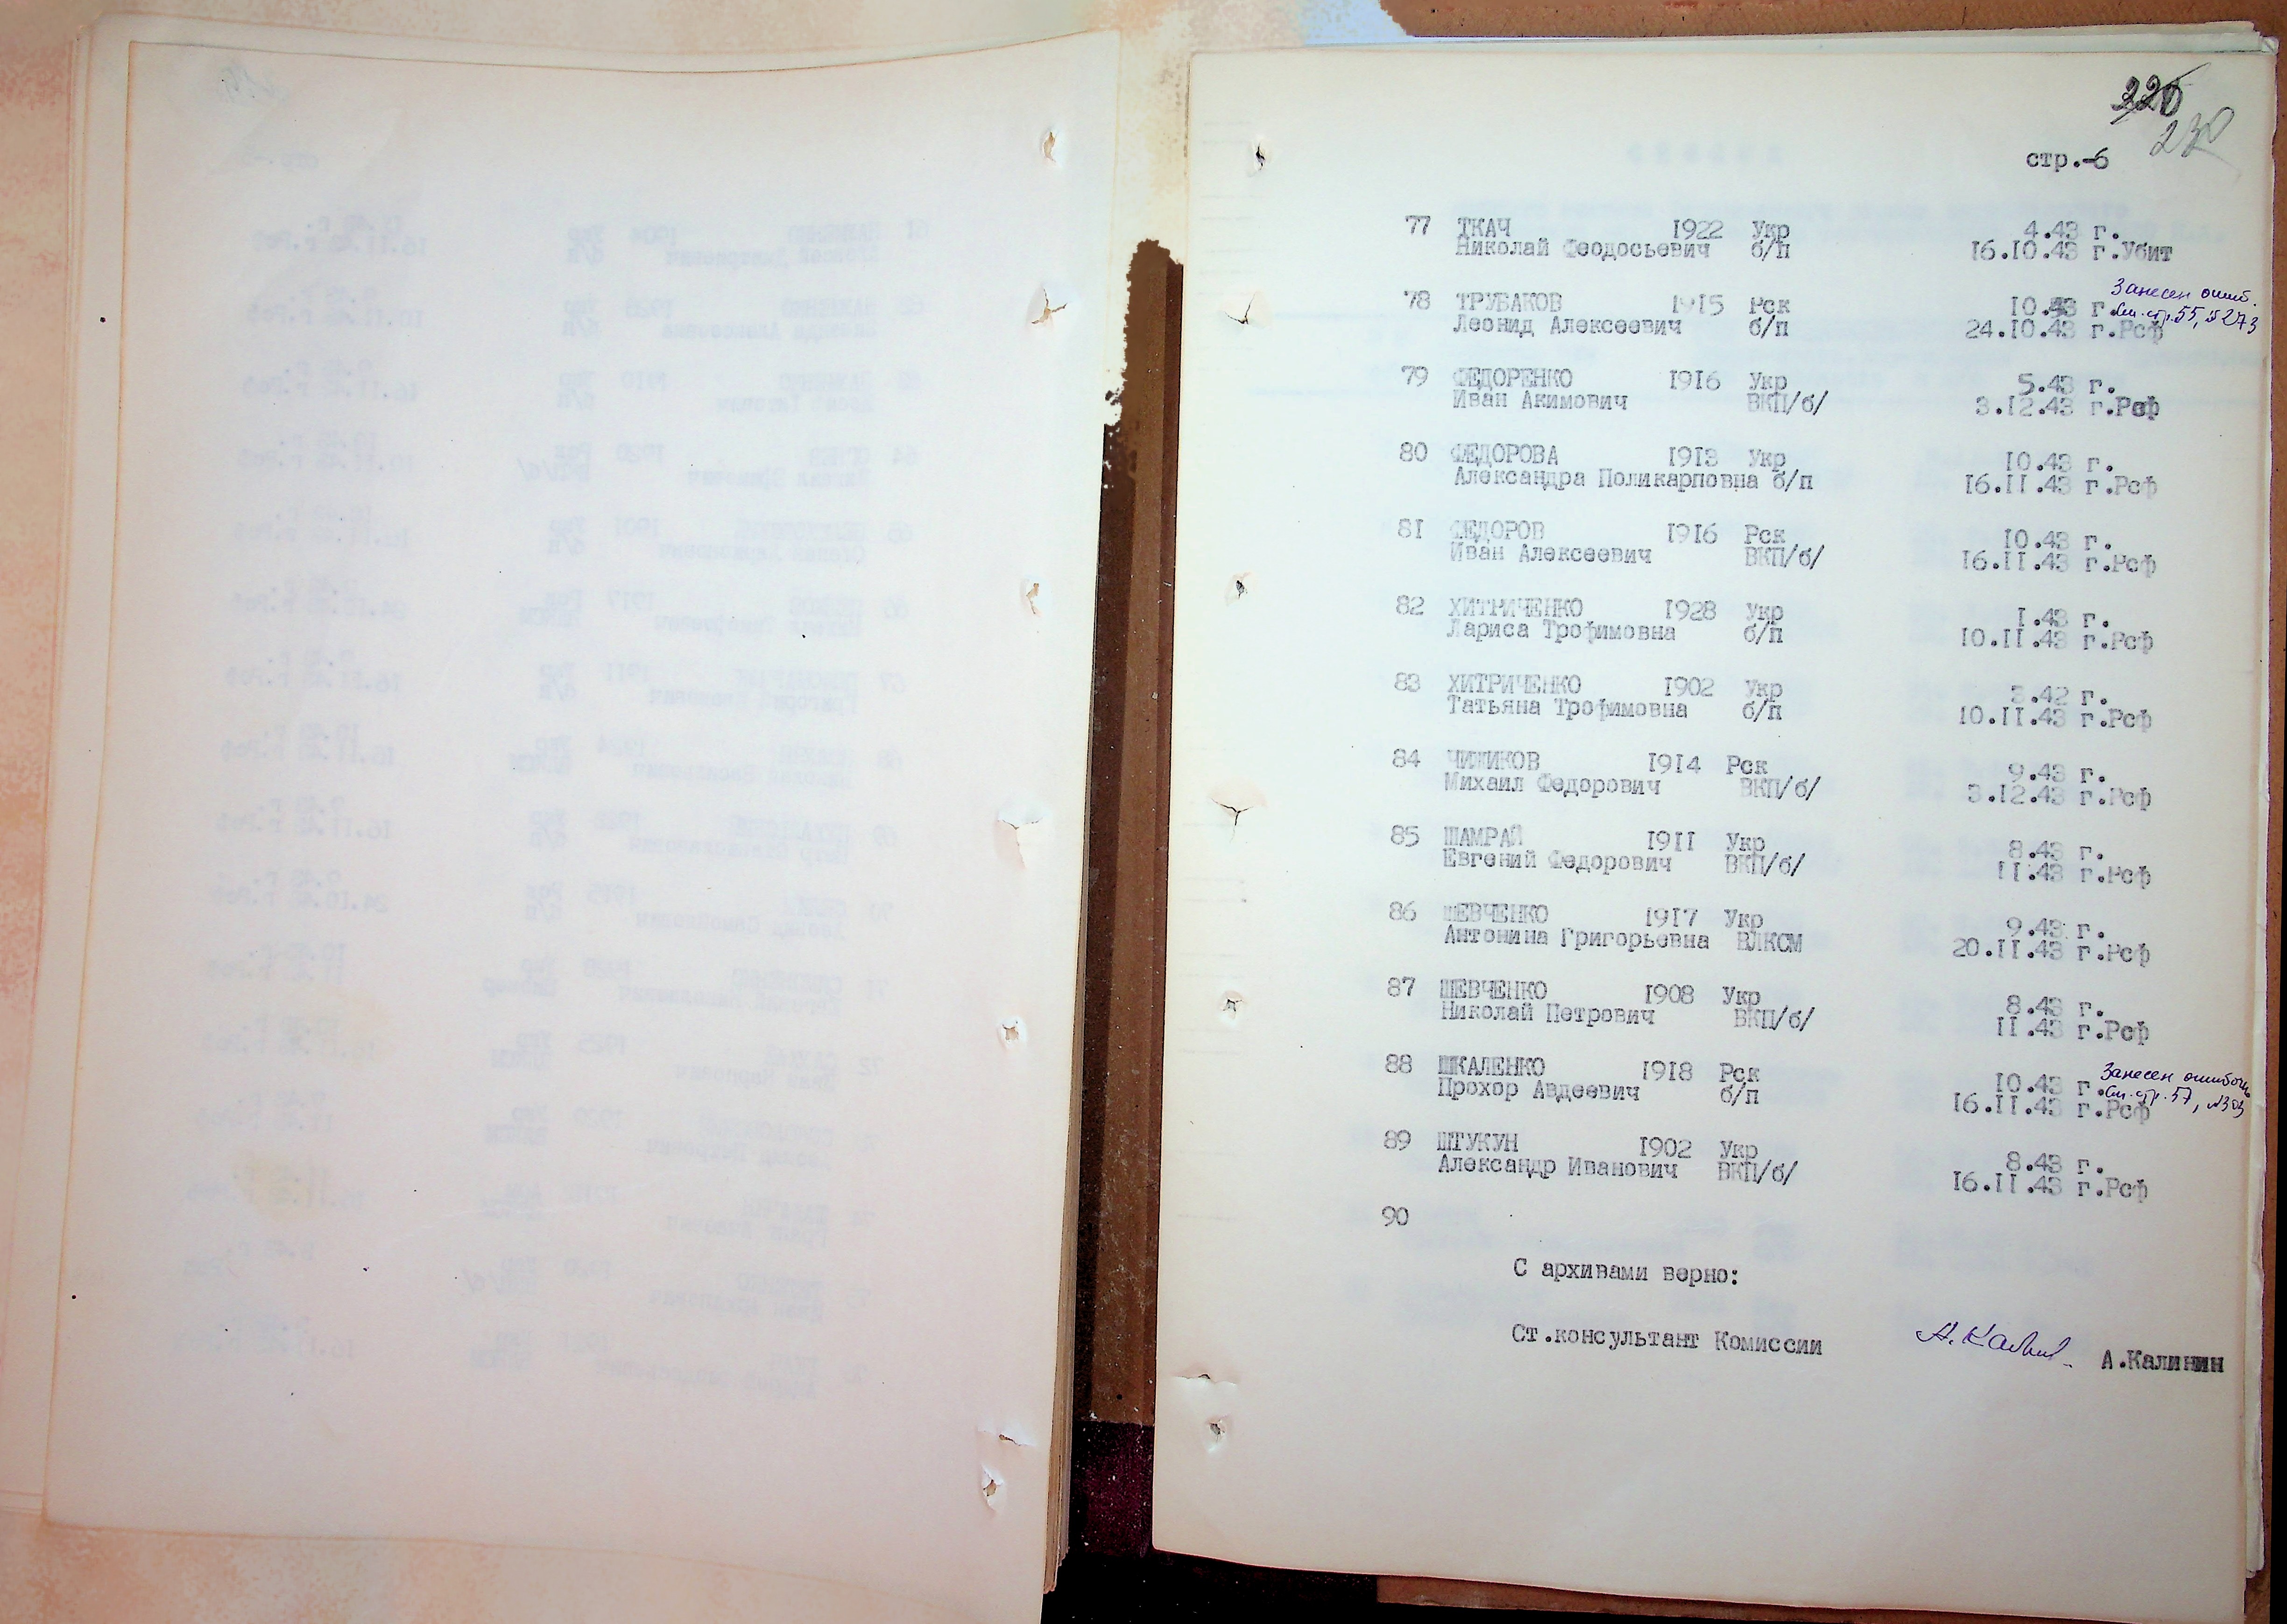 220
230
стр.-6
77 ТКАЧ 1922 Укр 4.43 г.
Николай Феодосьевич б/п 16.10.43 г.Убит
Занесен ошиб.
78 ТРУБАКОВ 1915 Рск 10.43 г. См. стр. 55, № 273
Леонид Алексеевич б/п 24.10.43 г.Рсф
79 ФЕДОРЕНКО 1916 Укр 5.43 г.
Иван Акимович ВКП/б/ 3.12.43 г.Рсф
80 ФЕДОРОВА 1913 Укр 10.43 г.
Александра Поликарповна б/п 16.11.43 г.Рсф
81 ФЕДОРОВ 1916 Рск 10.43 г.
Иван Алексеевич ВКП/б/ 16.11.43 г.Рсф
82 ХИТРИЧЕНКО 1928 Укр 1.43 г.
Лариса Трофимовна б/п 10.11.43 г.Рсф
83 ХИТРИЧЕНКО 1902 Укр 3.42 г.
Татьяна Трофимовна б/п 10.11.43 г.Рсф
84 ЧИЖИКОВ 1914 Рск 9.43 г.
Михаил Федорович ВКП/б/ 3.12.43 г.Рсф
85 ШАМРАЙ 1911 Укр 8.43 г.
Евгений Федорович ВКП/б/ 11.43 г.Рсф
86 ШЕВЧЕНКО 1917 Укр 9.43 г.
Антонина Григорьевна ВЛКСМ 20.11.43 г.Рсф
87 ШЕВЧЕНКО 1908 Укр 8.43 г.
Николай Петрович ВКП/б/ 11.43 г.Рсф
88 ШКАЛЕНКО 1918 Рск 10.43 г. Занесен ошибочн.
Прохор Авдеевич б/п 16.11.43 г.Рсф См. стр. 57, №303
89 ШТУКУН 1902 Укр 8.43 г.
Александр Иванович ВКП/б/ 16.11.43 г.Рсф
90
С архивами верно:
Ст.консультант Комиссии А.Калинин